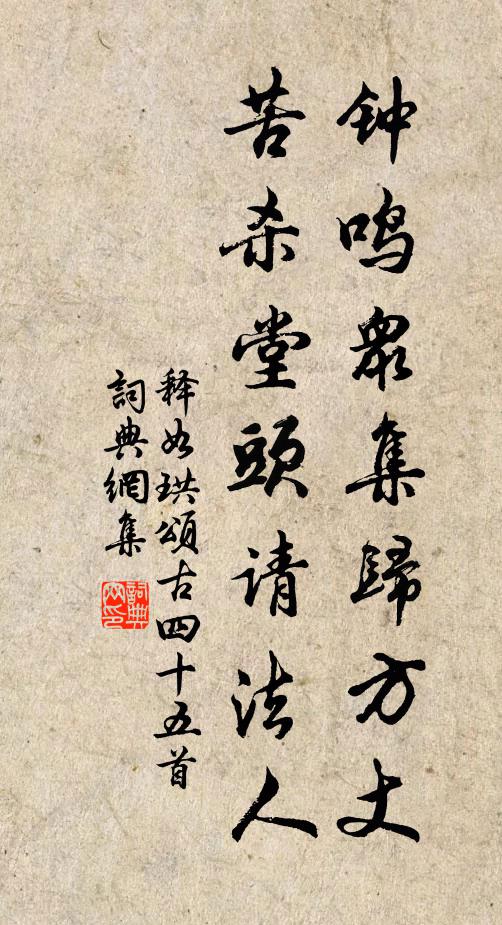 钟鸣眾集歸方丈
苦杀堂頭请法人
释如珙頌古四十五首
詞典網集
詞典
网印